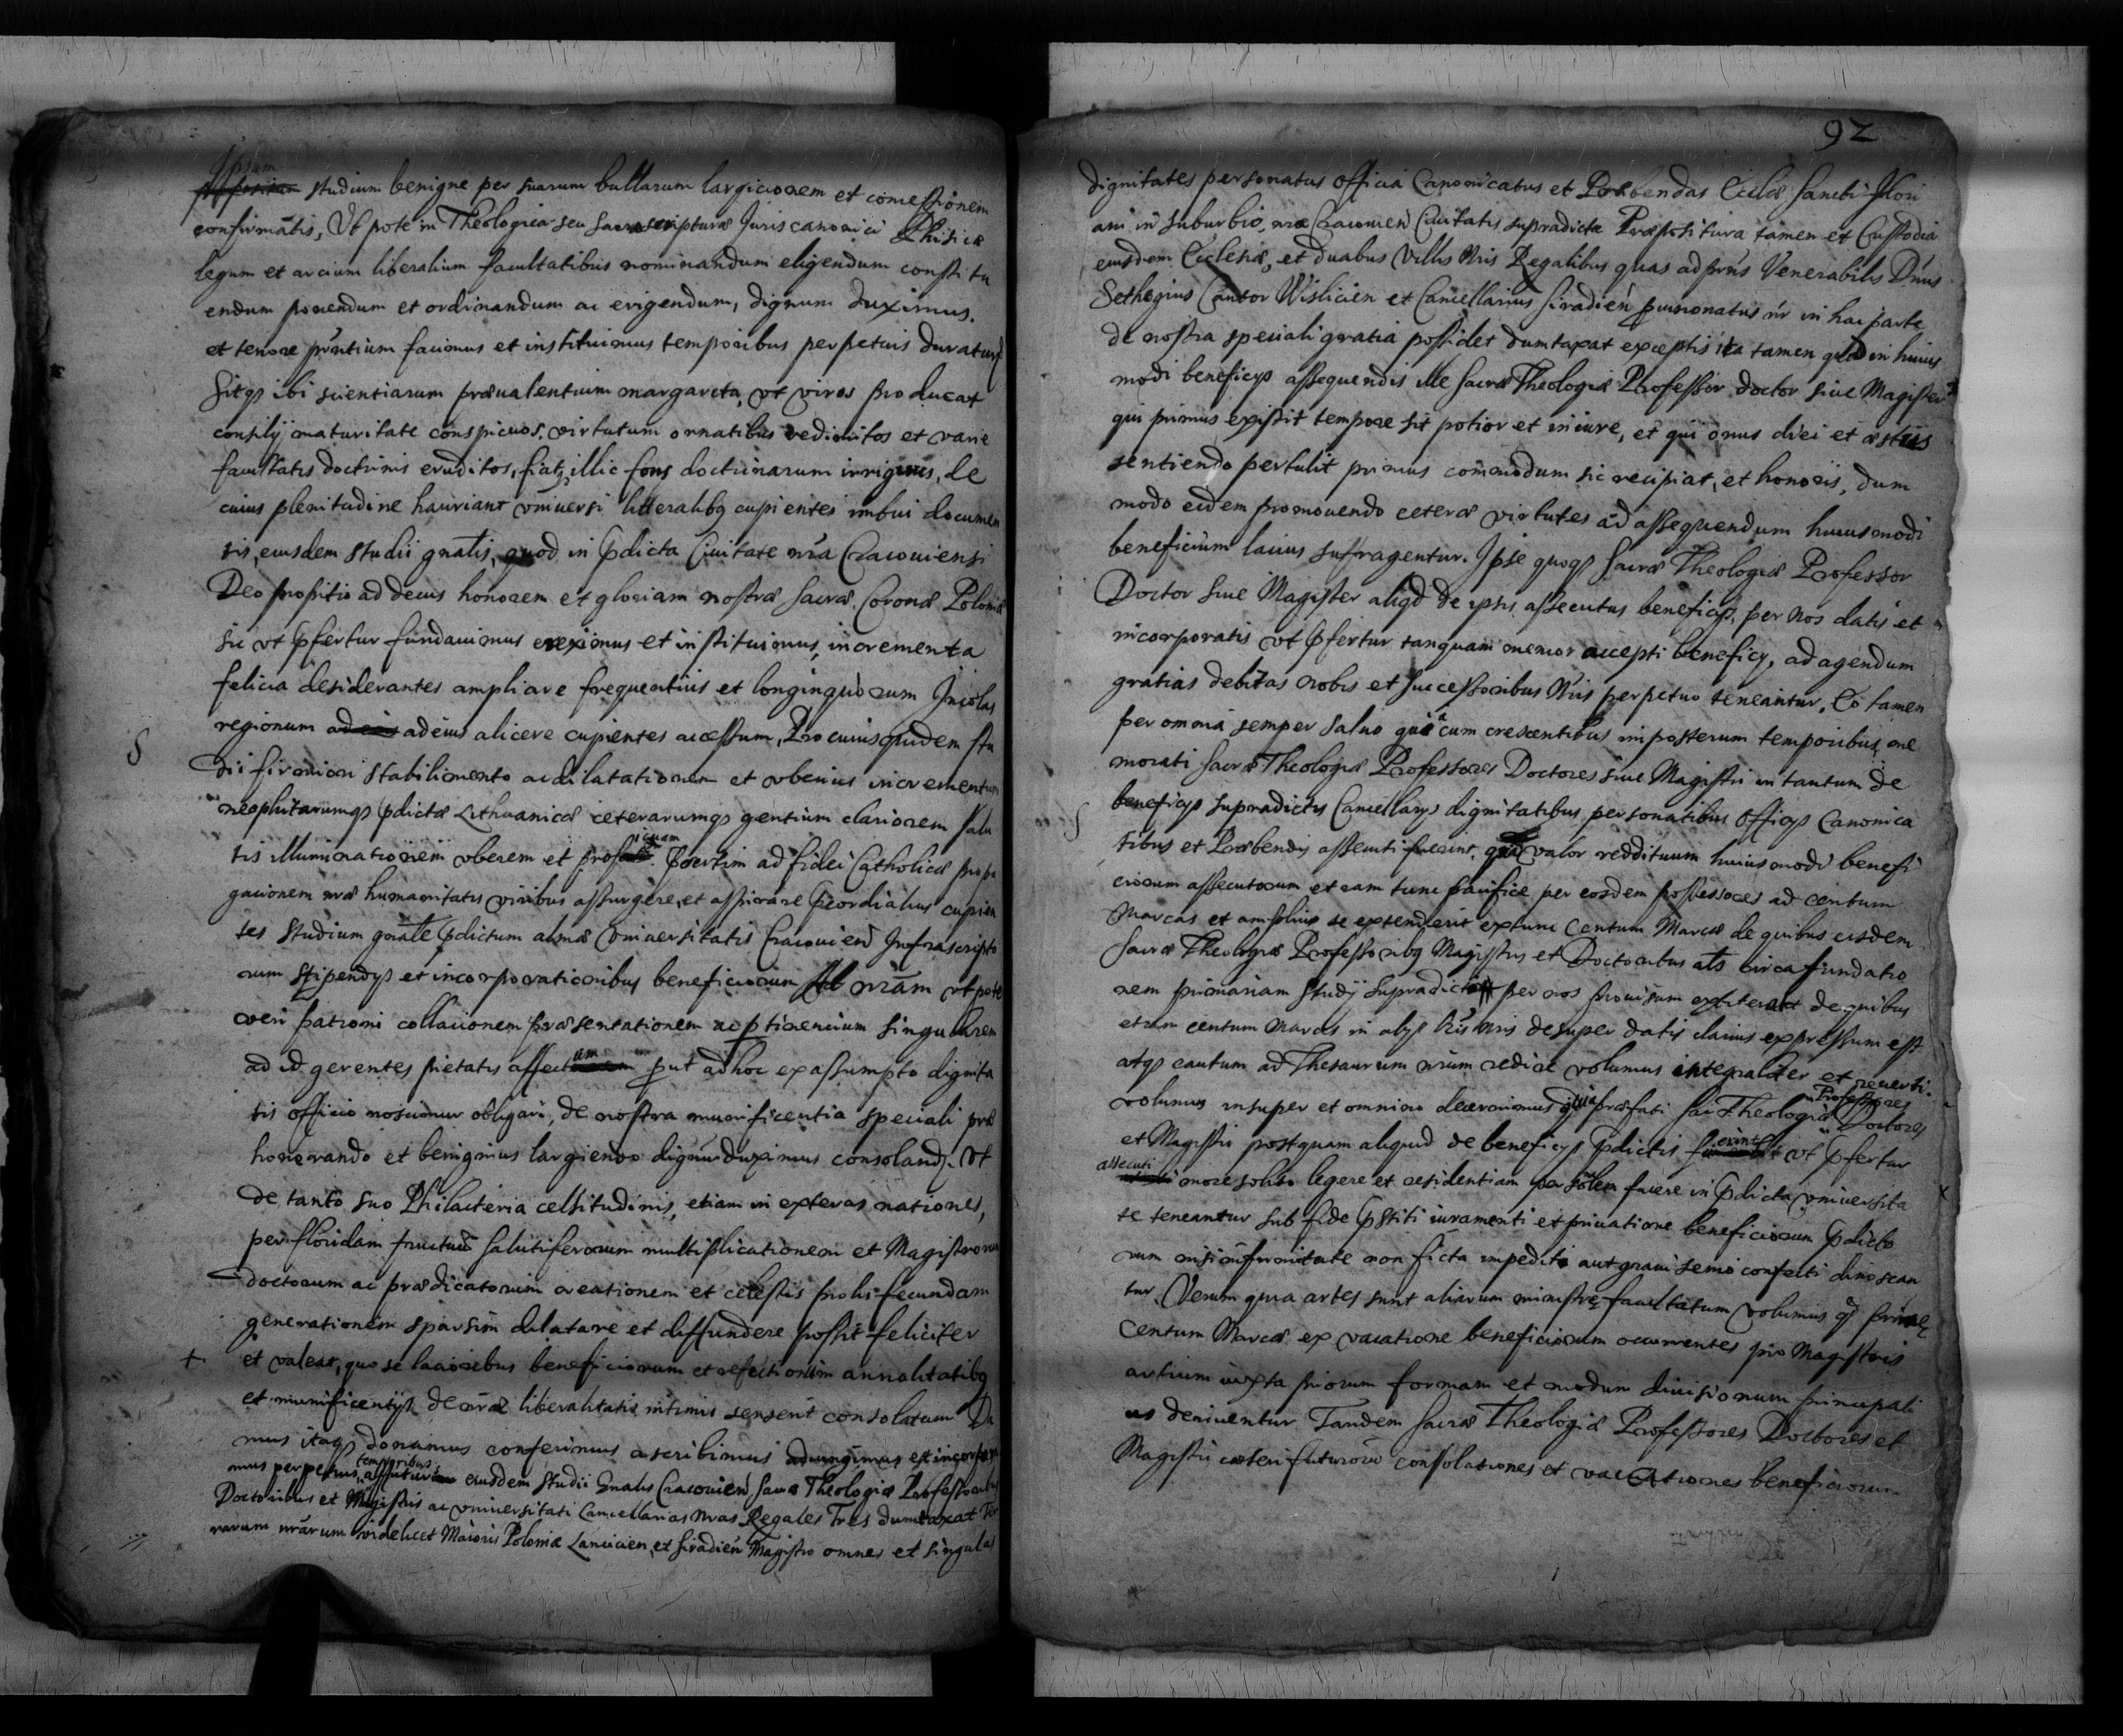 Ipsum
studium benigne per suarum bullarum largicionem et concessionem
confirmatis, Ut pote in Theologica seu sacra scriptura Juris canonici Phisicæ
legum et arcium liberalium facultatibus nominandum eligendum constitu
endum ponendum et ordinandum ac erigendum, dignum duximus.
et tenore pñtium facimus et instituimus temporibus perpetuis duratur
Sitqȝ ibi scientiarum præualentium margareta, vt viros producat
consilij maturitate conspicuos, virtutum ornatibus redimitos et varie
facultatis doctrinis eruditos, fiatqȝ illic fons doctrinarum irriguus, de
cuius plenitudine hauriant vniuersi litteralibȝ cupientes imbui documen
tis, eiusdem studii gñalis, quod in p̃dicta Ciuitate nrã Cracouiensi
Deo propitio ad decus honorem et gloriam nostræ sacræ Coronæ Poloniæ
sic vt p̃fertur fundauimus ereximus et instituimus, incrementa
felicia desiderantes ampliare frequentius et longinquorum Incolas
regionum ad eius ad eius alicere cupientes accessum, Pro cuius quidem stu
§
dii firmiori stabilimento ac dilatationem et vberius incrementum
neophitarumqȝ p̃dictæ Lithuanicæ ceterarumqȝ gentium clariorem salu
tis illuminationem vberem et p̃sertim ad fidei Catholicæ propa
gacionem nræ humanitatis viribus assurgere, et aspirare p̃cordialius cupien
tes studium gñale p̃dictum almæ Vniuersitatis Cracouien Infrascripto
rum stipendys et incorporationibus beneficiorum Ad nrãm vt pote
veri patroni collacionem præsentationem ac ptinencium singularem
ad id gerentes pietatis affectum put ad hoc ex assumpto dignita
tis officio noscimur obligari, de nostra munificentia speciali præ
honorando et benignius largiendo dignum duximus consoland. Vt
de tanto suo Philacteria celsitudinis, etiam in exteras nationes,
per floridam fructuũ salutiferorum multiplicationem et Magistrorum
doctorum ac prædicatorum creationem et celestis prolis fecundam
generationem sparsim dilatare et diffundere possit feliciter
+ et valeat, quo se lacioribus beneficiorum et refectionum annalitatibȝ
et munificentijs decoræ liberalitatis intimis senserit consolatum Da
mus itaqȝ donamus conferimus ascribimus adiungimus et incorpora
mus perpetuis temporibus eiusdem studii Gnalis Cracouien Sacræ Theologiæ Professoribus
Doctoribus et Magistris ac vniuersitati Cancellarias Nras Regales Tres dumtaxat Ter
rarum nrãrum videlicet Maioris Poloniæ Lancicien, et Siradien Magistro omnes et singulas
92
dignitates personatus officia Canonicatus et Præbendas Eccliæ Sancti Flori
ani in suburbio, nræ Cracouien Ciuitatis supradictæ Præpositura tamen et Custodia
eiusdem Ecclesiæ, et duabus Villis Nris Regalibus quas ad prñs Venerabilis Dñus
Sethegius Cantor Wislicien et Cancellarius Siradien in hac parte
de nostra speciali gratia possidet dumtaxat exceptis ita tamen quod in huius
modi beneficys assequendis ille Sacræ Theologiæ Professor doctor siue Magister
qui primus existit tempore sit potior et in iure, et qui onus diei et æstus
sentiendo pertulit primus commodum sic recipiat, et honoris, dum
modo eidem promouendo ceteræ virtutes ad assequendum huiusmodi
beneficium lacius suffragentur. Ipse quoqȝ Sacræ Theologiæ Professor
Doctor siue Magister aliqd de ipsis assecutus beneficys, per nos datis et
incorporatis vt p̃fertur tanquam memor accepti beneficy, ad agendum
gratias debitas nobis et successoribus Nris perpetuo teneantur. Eo tamen
per omnia semper saluo quia cum crescentibus imposterum temporibus me
morati Sacræ Theologiæ Professores Doctores siue Magistri in tantum de
§ beneficys supradictis Cancellarys dignitatibus personatibus Officys Canonica
tibus et Præbendis assecuti fuerint, quod valor reddituum huiusmodi benefi
ciorum assecutorum et iam tunc pacifice per eosdem possessores ad centum
Marcas et amplius se extenderit extunc Centum Marcæ de quibus eisdem
Sacræ Theologiæ Professoribȝ Magistris et Doctoribus als circa fundatio
nem primariam studij supradicti per nos prouisum extiterat de quibus
etiam centum Marcis in alys lris nris desuper datis clarius expressum est
atqȝ cautum ad Thesaurum nrum redire volumus integraliter et reuerti.
volumus insuper et omnino decernimus quia præfati Sac Theologiæ Professores Doctores
et Magistri postquam aliquid de beneficys p̃dictis fuerint vt p̃fertur
assecuti more solito legere et residentiam personalem facere in p̃dicta vniuersita
te teneantur sub fide p̃stiti iuramenti et priuatione beneficiorum p̃dicto
rum nisi infirmitate non ficta impediti aut graui senio confecti dinoscan
tur. Verum quia artes sunt aliarum ministræ facultatum volumus q̃ primæ
Centum Marcæ ex vacatione beneficiorum occurrentes pro Magistris
artium iuxta priorum formam et modum diuisionum principali
us deriuentur Tandem Sacræ Theologiæ Professores Doctores et
Magistri cæteri futurorũ consolationes et vacationes beneficiorum